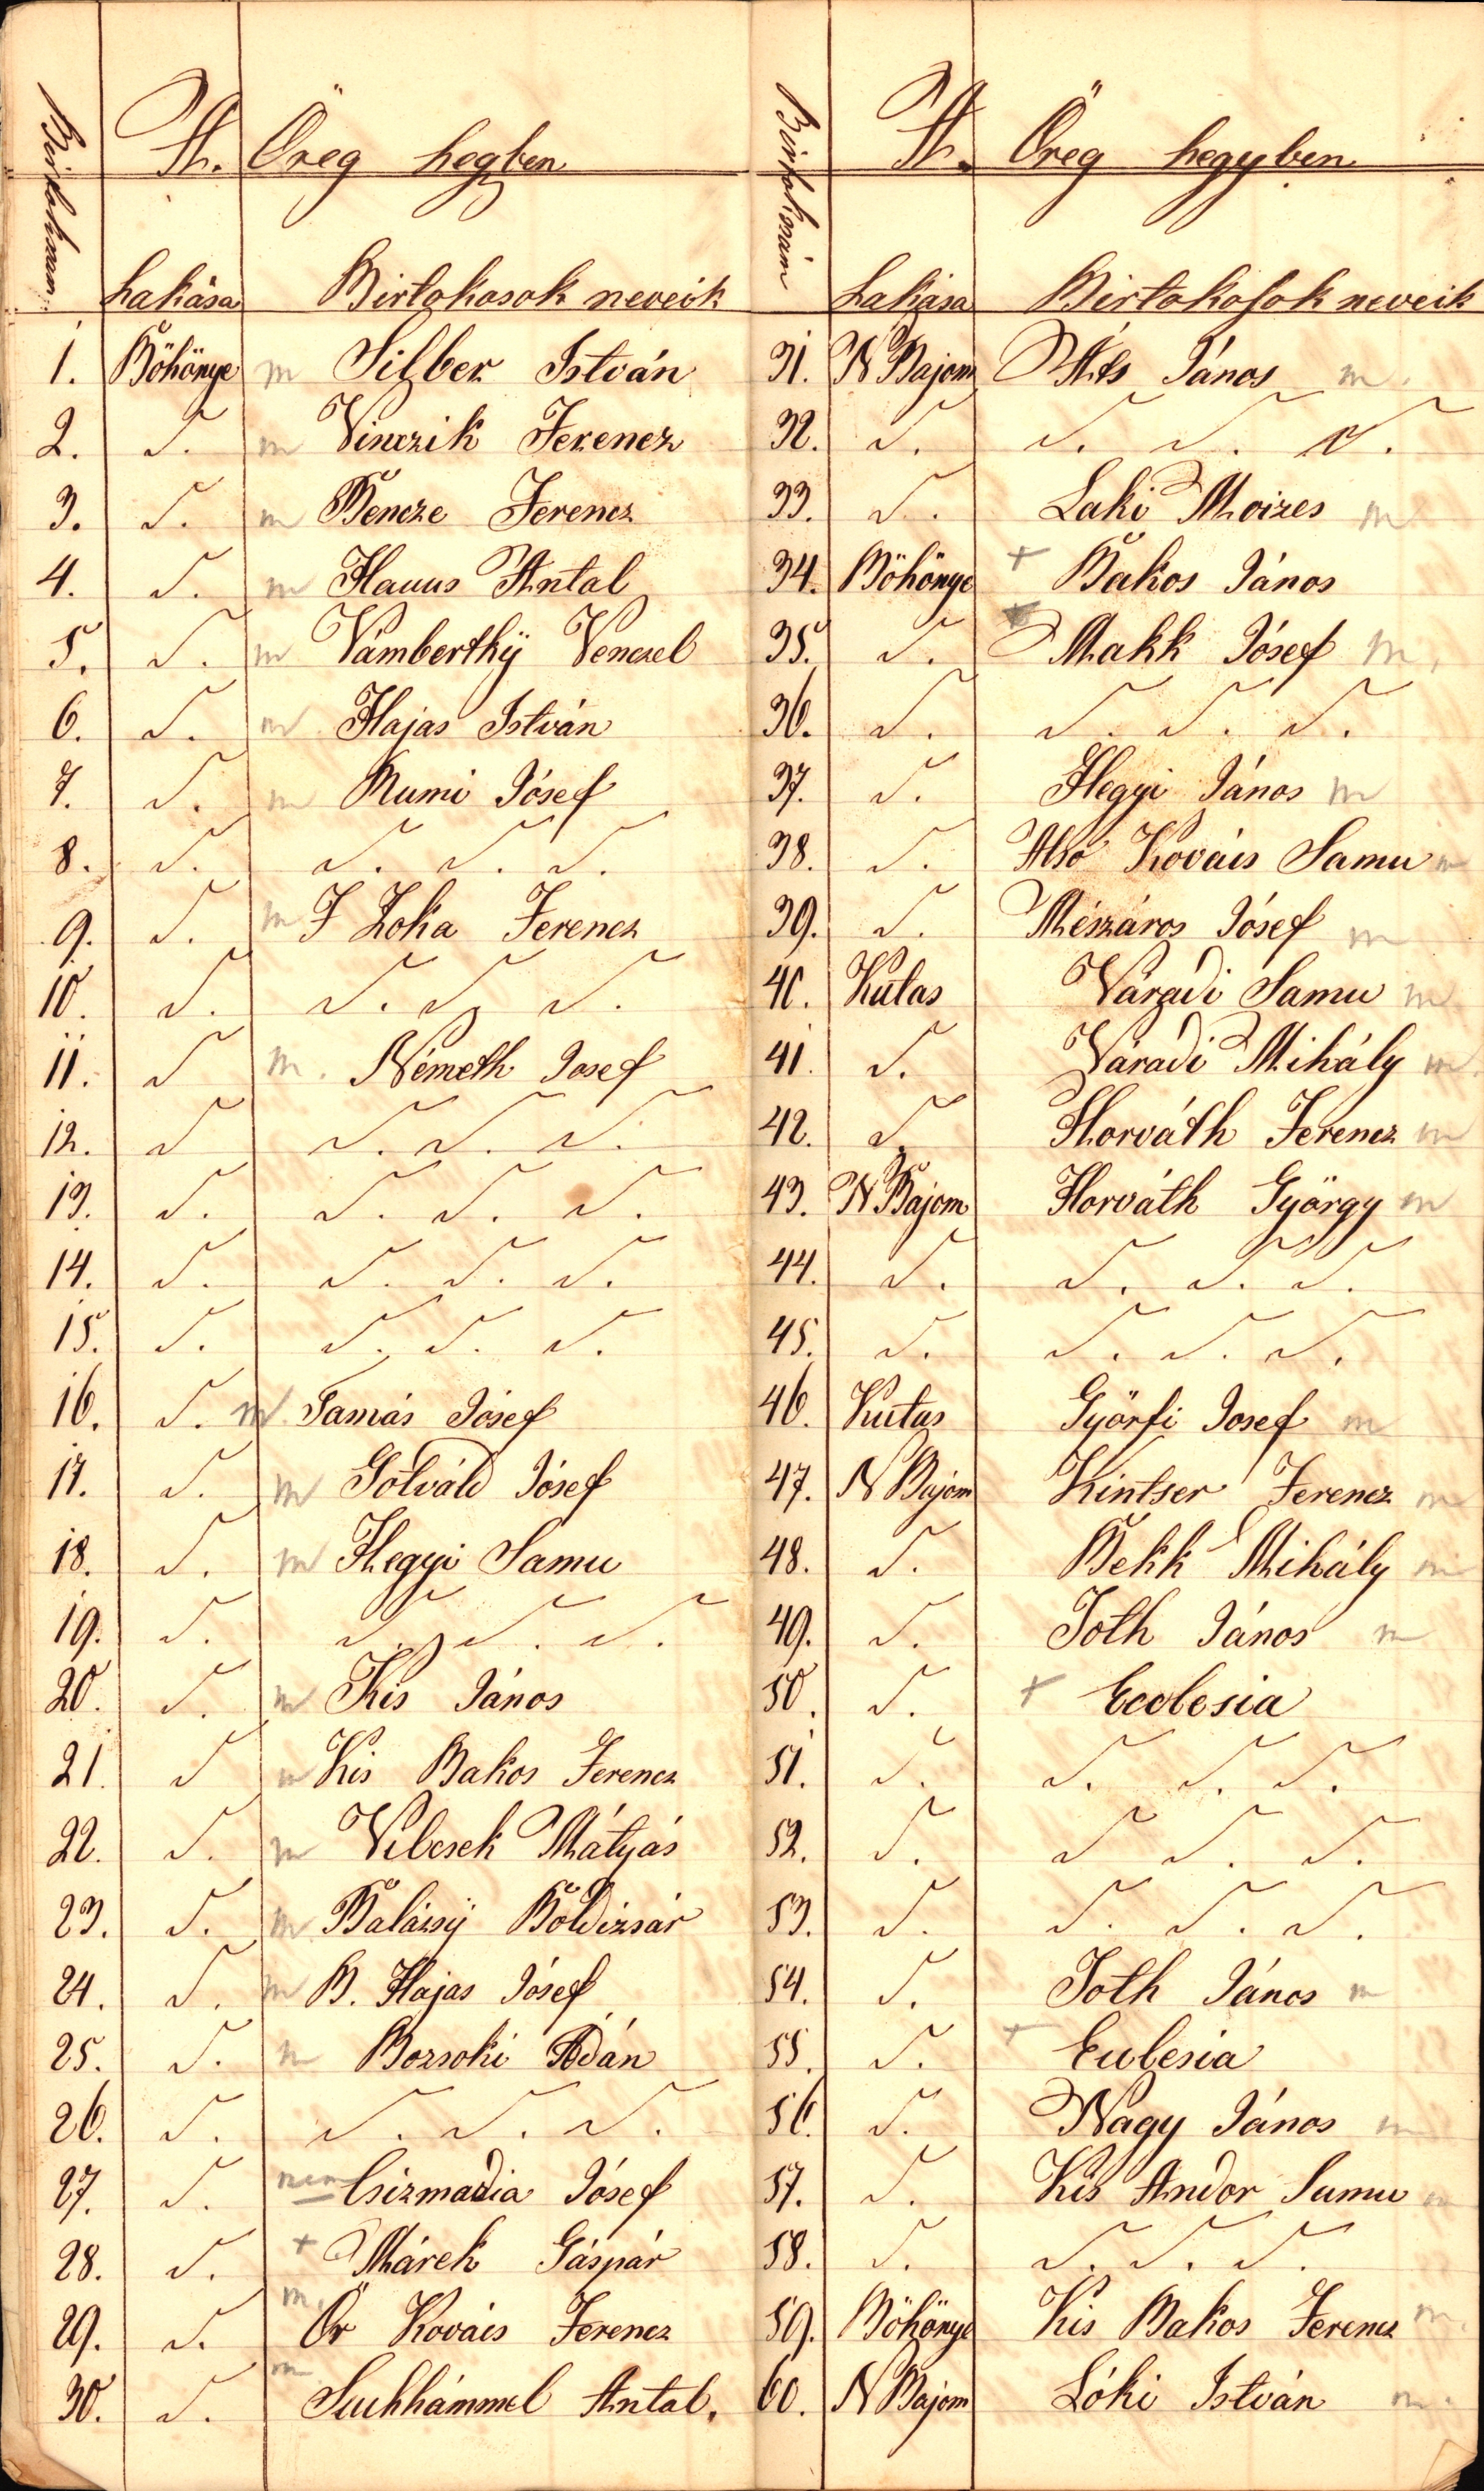 Birtokszám
A. Öreg hegyben
Lakása Birtokosok neveik
1. Böhönye m Silber István
2. S. m Vinczik Ferencz
3. S. m Bencze Ferencz
4. S. m Antal
5. S. m Vámberthÿ Venczel
6. S. m Hajas István
7. S. m Rumi Jósef
8. S. S. S. S.
9. S. m F Zoka Ferencz
10. S. S. S. S.
11. S m. Németh Josef
12. S S. S. S.
13. S. S. S. S.
14. S. S. S. S.
15. S. S. S. S.
16. S. m Tamás Jósef
17. S. m Gotváld Jósef
18. S. m Hegyi Samu
19. S. S. S. S.
20. S. m Kis János
21. S m Kis Bakos Ferencz
22. S. m Vilcsek Mátyás
23. S. m Balássÿ Boldizsár
24. S. m B. Hajas Jósef
25. S. m Bozsoki Ádán
26. S. S. S. S.
27. S. nem Csizmadia Jósef
28. S. + Márek Gáspár
29. S. m. Őr Kovács Ferencz
30. S. m Suchhámmel Antal.
Birtokszám
A. Öreg hegyben
Lakása Birtokosok neveik
31. N Bajom Áts János m.
32. S. S. S. S.
33. S. Laki Moizes m
34. Böhönye + Bakos János
35. S. Makk Jósef m.
36. S. S. S. S.
37. S. Hegyi János m
38. S. Alsó Kovács Samu m
39. S. Mészáros Jósef m
40. Kutas Váradi Samu m
41. S. Váradi Mihály m
42. S. Horváth Ferencz m
43. N Bajom Horváth György m
44. S. S. S. S.
45. S. S. S. S.
46. Kutas Györfi Josef m
47. N Bajom Kintser Ferencz m
48. S. Bekk Mihály m
49. S. Toth János m
50. S. + Ecclesia
51. S. S. S. S.
52. S. S S. S.
53. S. S. S. S.
54. S. Toth János m
55. S. + Eclesia
56. S. Nagy János m
57. S. Kis Andor Samu m
58. S. S. S. S.
59. Böhönye Kis Bakos Ferencz m.
60. N Bajom Lóki István m.